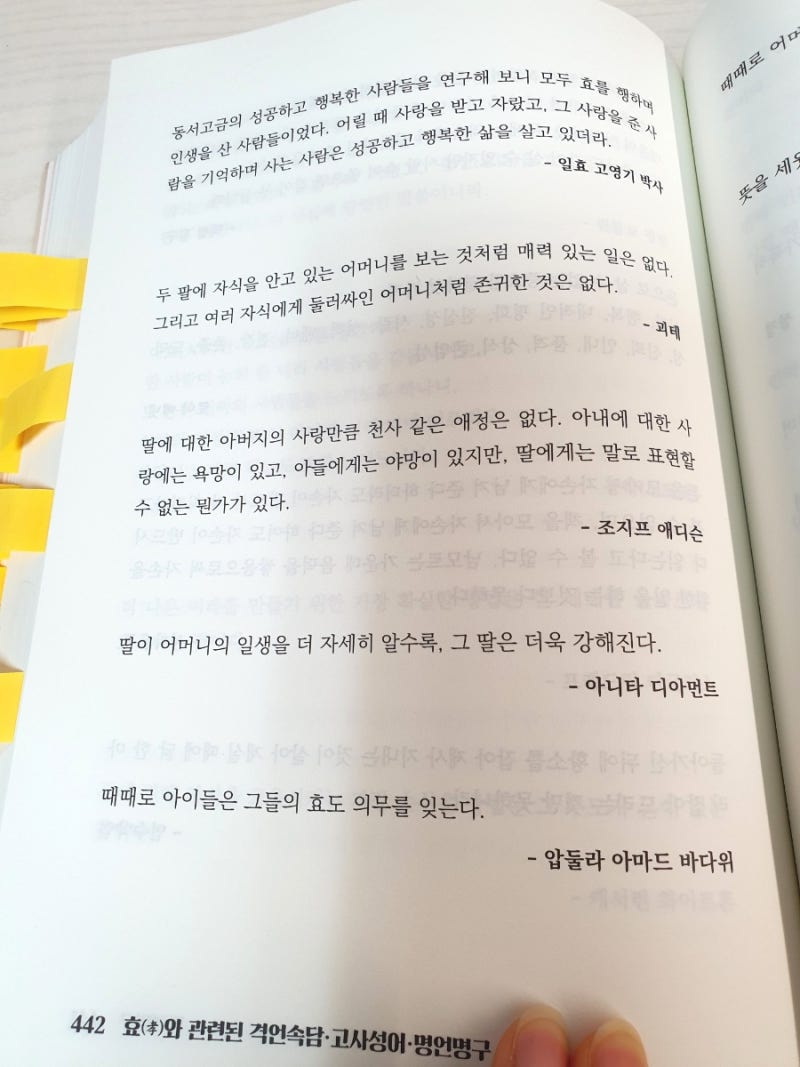 동서고금의 성공하고 행복한 사람들을 연구해 보니 모두 효를 행하며
인생을 산 사람들이었다. 어릴 때 사랑을 받고 자랐고, 그 사랑을 준 사
람을 기억하며 사는 사람은 성공하고 행복한 삶을 살고 있더라.
- 일효 고영기 박사
두 팔에 자식을 안고 있는 어머니를 보는 것처럼 매력 있는 일은 없다.
그리고 여러 자식에게 둘러싸인 어머니처럼 존귀한 것은 없다.
- 괴테
딸에 대한 아버지의 사랑만큼 천사 같은 애정은 없다. 아내에 대한 사
랑에는 욕망이 있고, 아들에게는 야망이 있지만, 딸에게는 말로 표현할
수 없는 뭔가가 있다.
- 조지프 애디슨
딸이 어머니의 일생을 더 자세히 알수록, 그 딸은 더욱 강해진다.
- 아니타 디아먼트
때때로 아이들은 그들의 효도 의무를 잊는다.
- 압둘라 아마드 바다위
442 효(孝)와 관련된 격언속담·고사성어·명언명구
때때로
뜻을